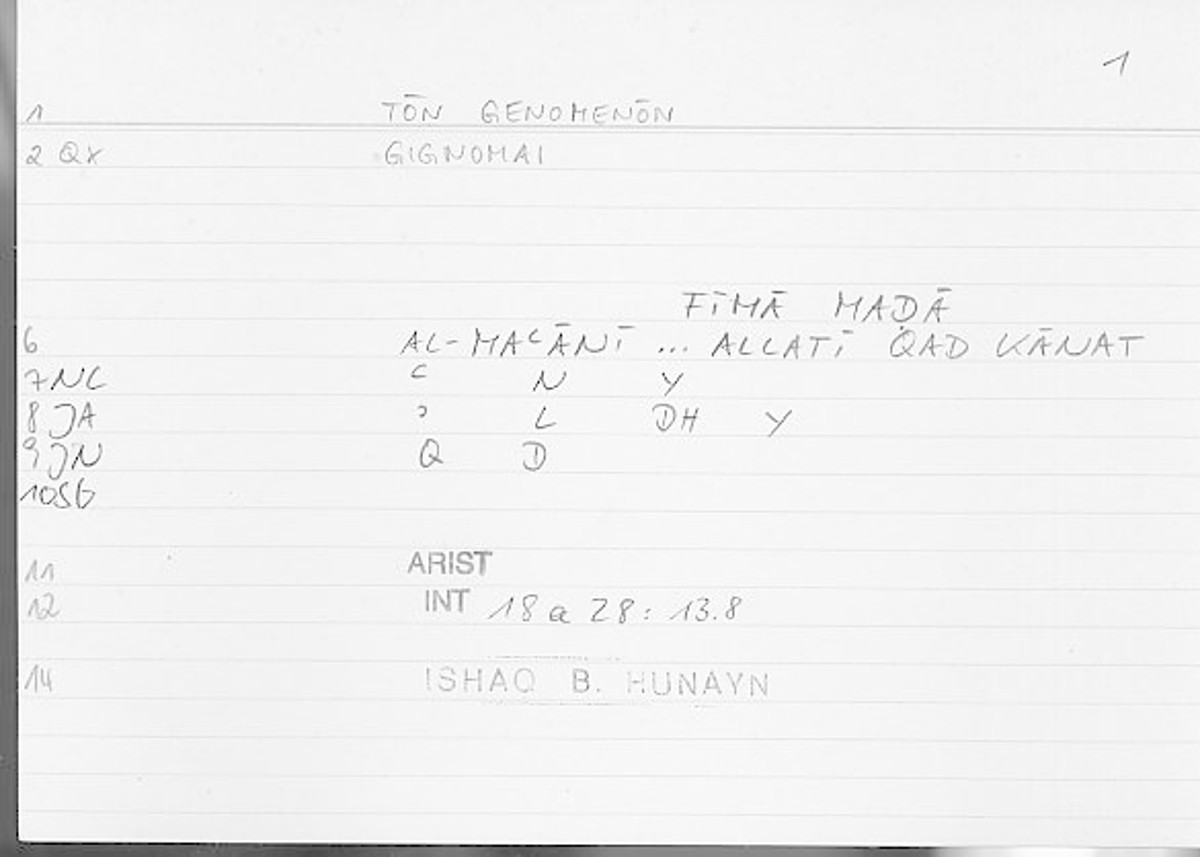 1
1 TŌN GENOMENŌN
2 QX GIGNOMAI
FĪMĀ MAḌĀ
6 AL-MAʿĀNĪ ... ALLATĪ QAD KĀNAT
7NC ʿ N Y
8 JA ʾ L DH Y
9 JN Q D
10SG
11 ARIST
12 INT 18 a 28: 13.8
14 ISHAQ B. HUNAYN